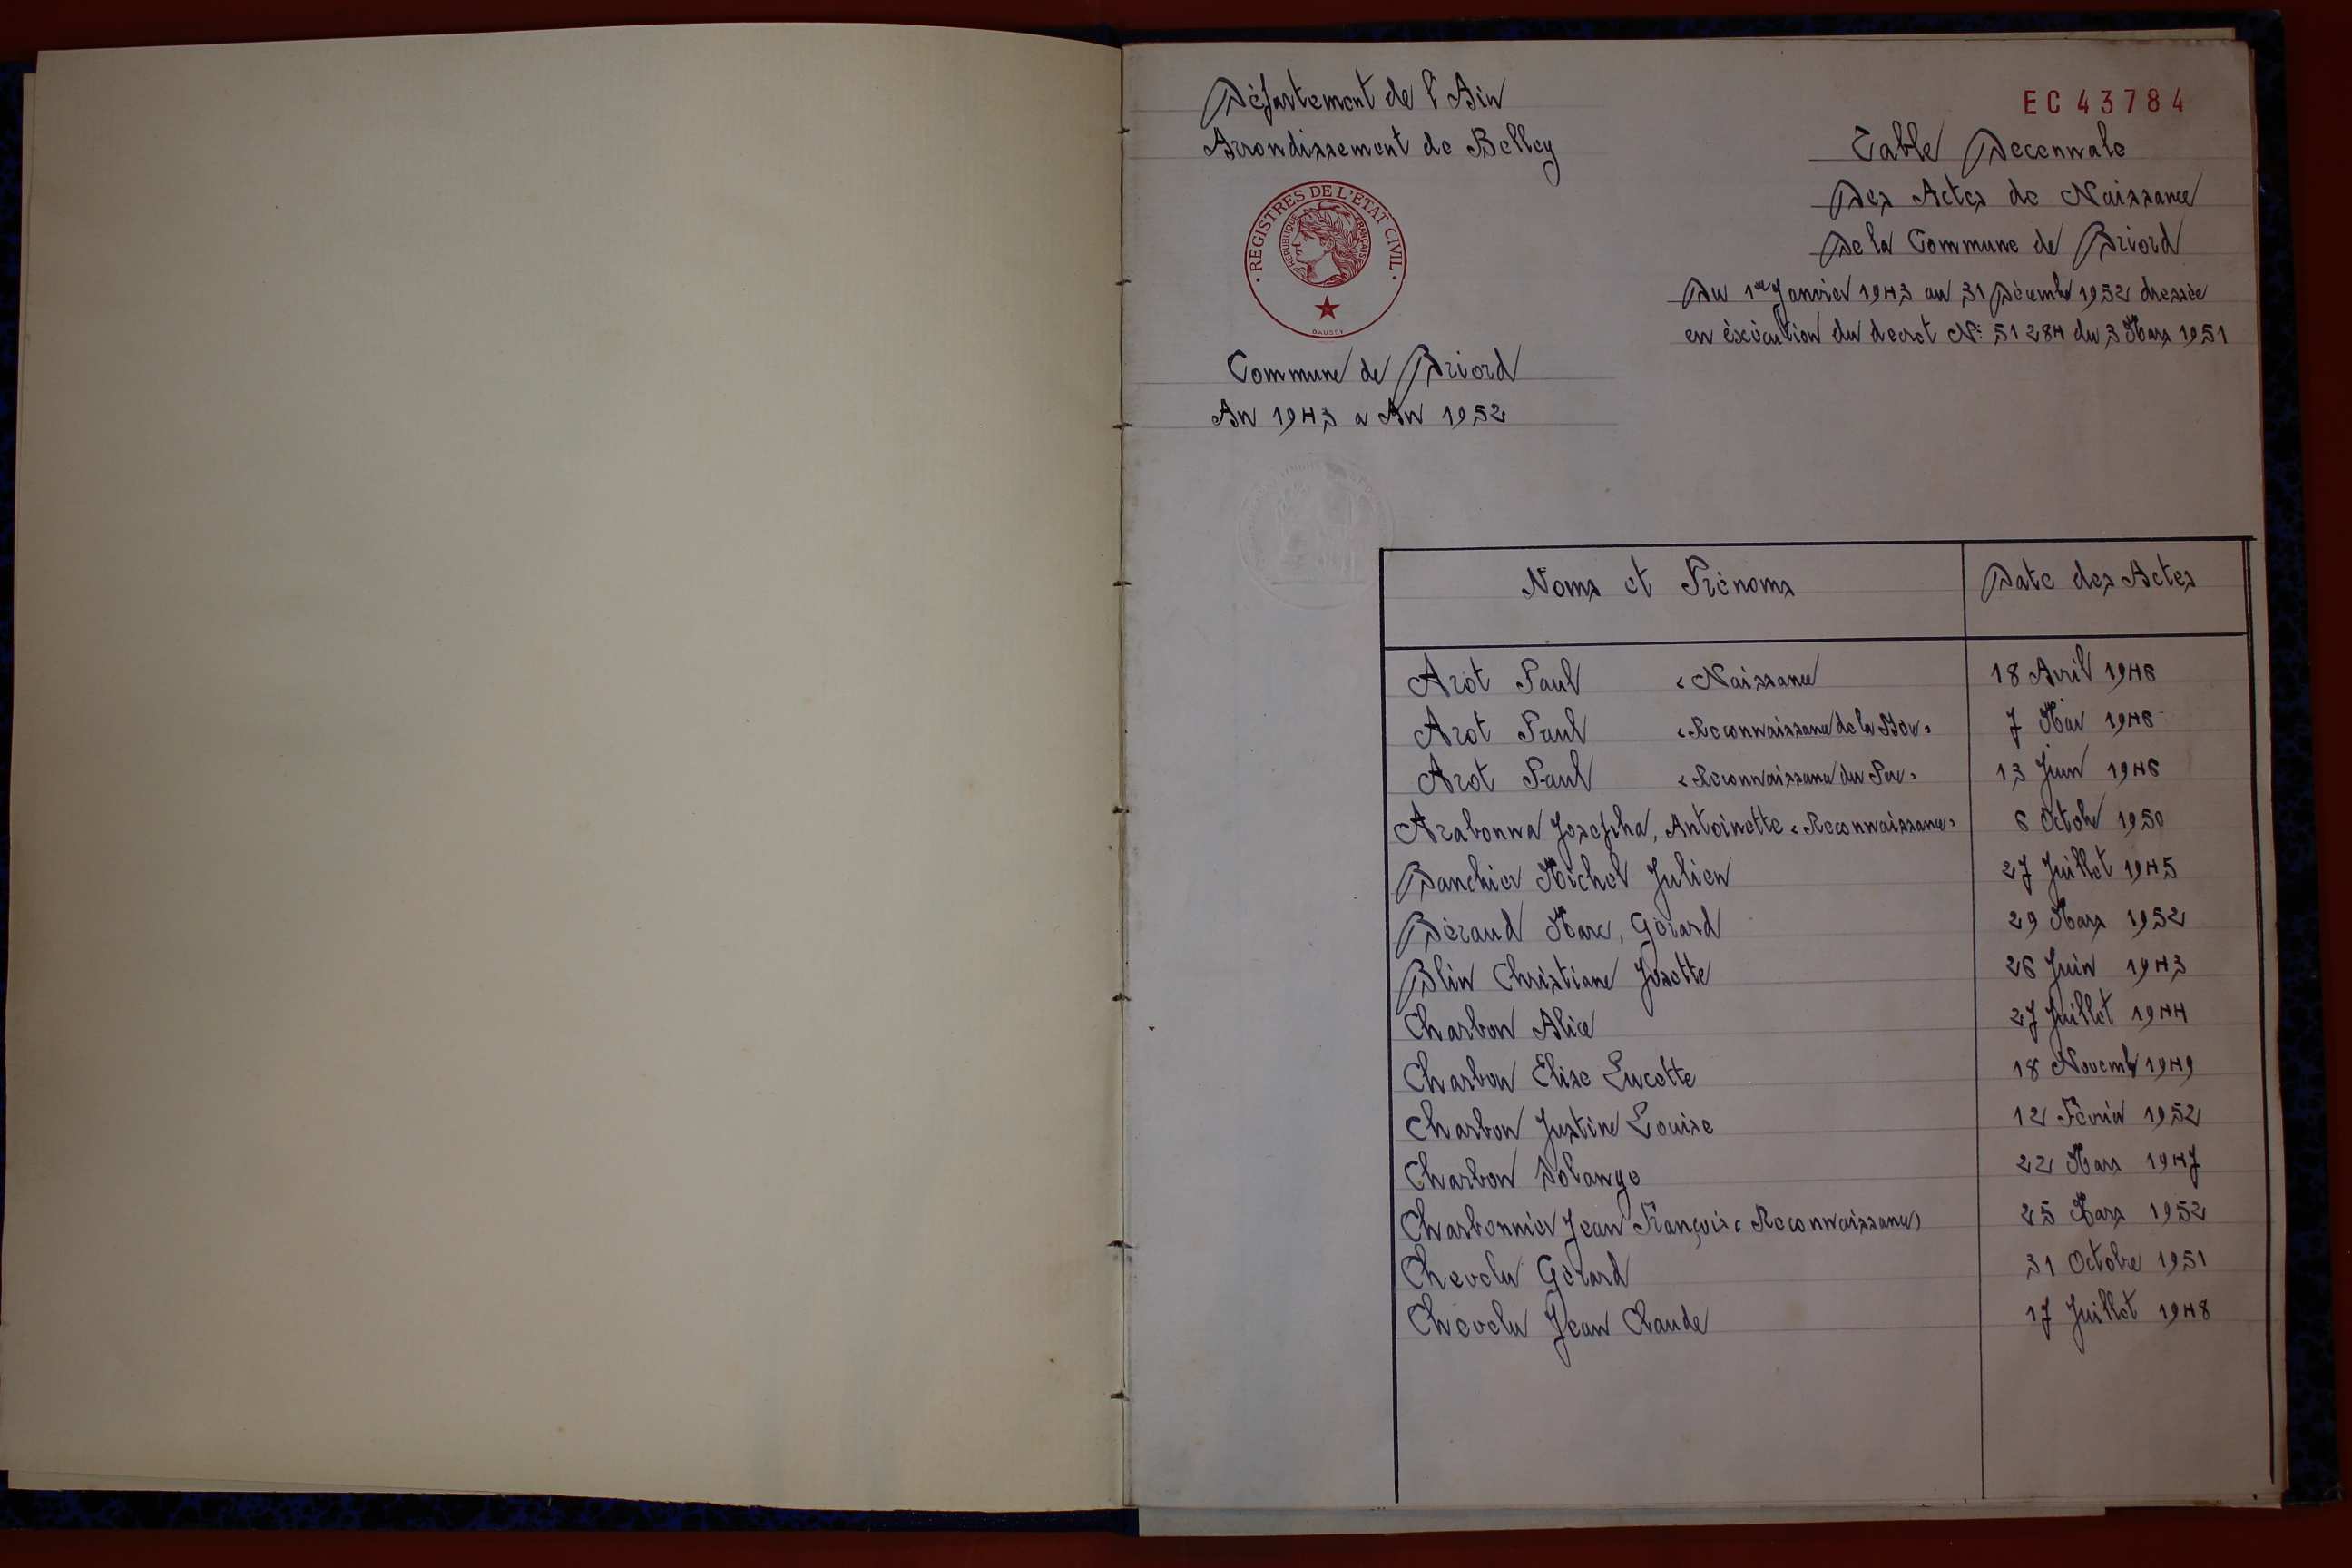 Département de l'Ain
Arrondissement de Belley
REGISTRES DE L'ÉTAT CIVIL
RÉPUBLIQUE FRANÇAISE
DAUSSY
Commune de Briord
An 1943 a An 1952
EC 43784
Table Decennale
Des Actes de Naissance
De la Commune de Briord
Du 1er Janvier 1943 au 31 Décembre 1952 dressée
en éxécution du decret N: 51 284 du 3 Mars 1951
Noms et Prénoms Date des Actes
Arot Paul "Naissance 18 Avril 1946
Arot Paul "Reconnaissance de la Mère" 7 Mai 1946
Arot Paul "Reconnaissance du Père" 13 Juin 1946
Arabonna Josepha, Antoinette "Reconnaissance" 6 Octobre 1950
Banchier Michel Julien 27 Juillet 1945
Béraud Marc, Gérard 29 Mars 1952
Blin Christiane Josette 26 Juin 1943
Charbon Alice 27 Juillet 1944
Charbon Elise Lucette 18 Novembre 1949
Charbon Justine Louise 12 Février 1952
Charbon Solange 22 Mars 1947
Charbonnier Jean François (Reconnaissance) 25 Mars 1952
Chevelu Gérard 31 Octobre 1951
Chevelu Jean Claude 17 Juillet 1948